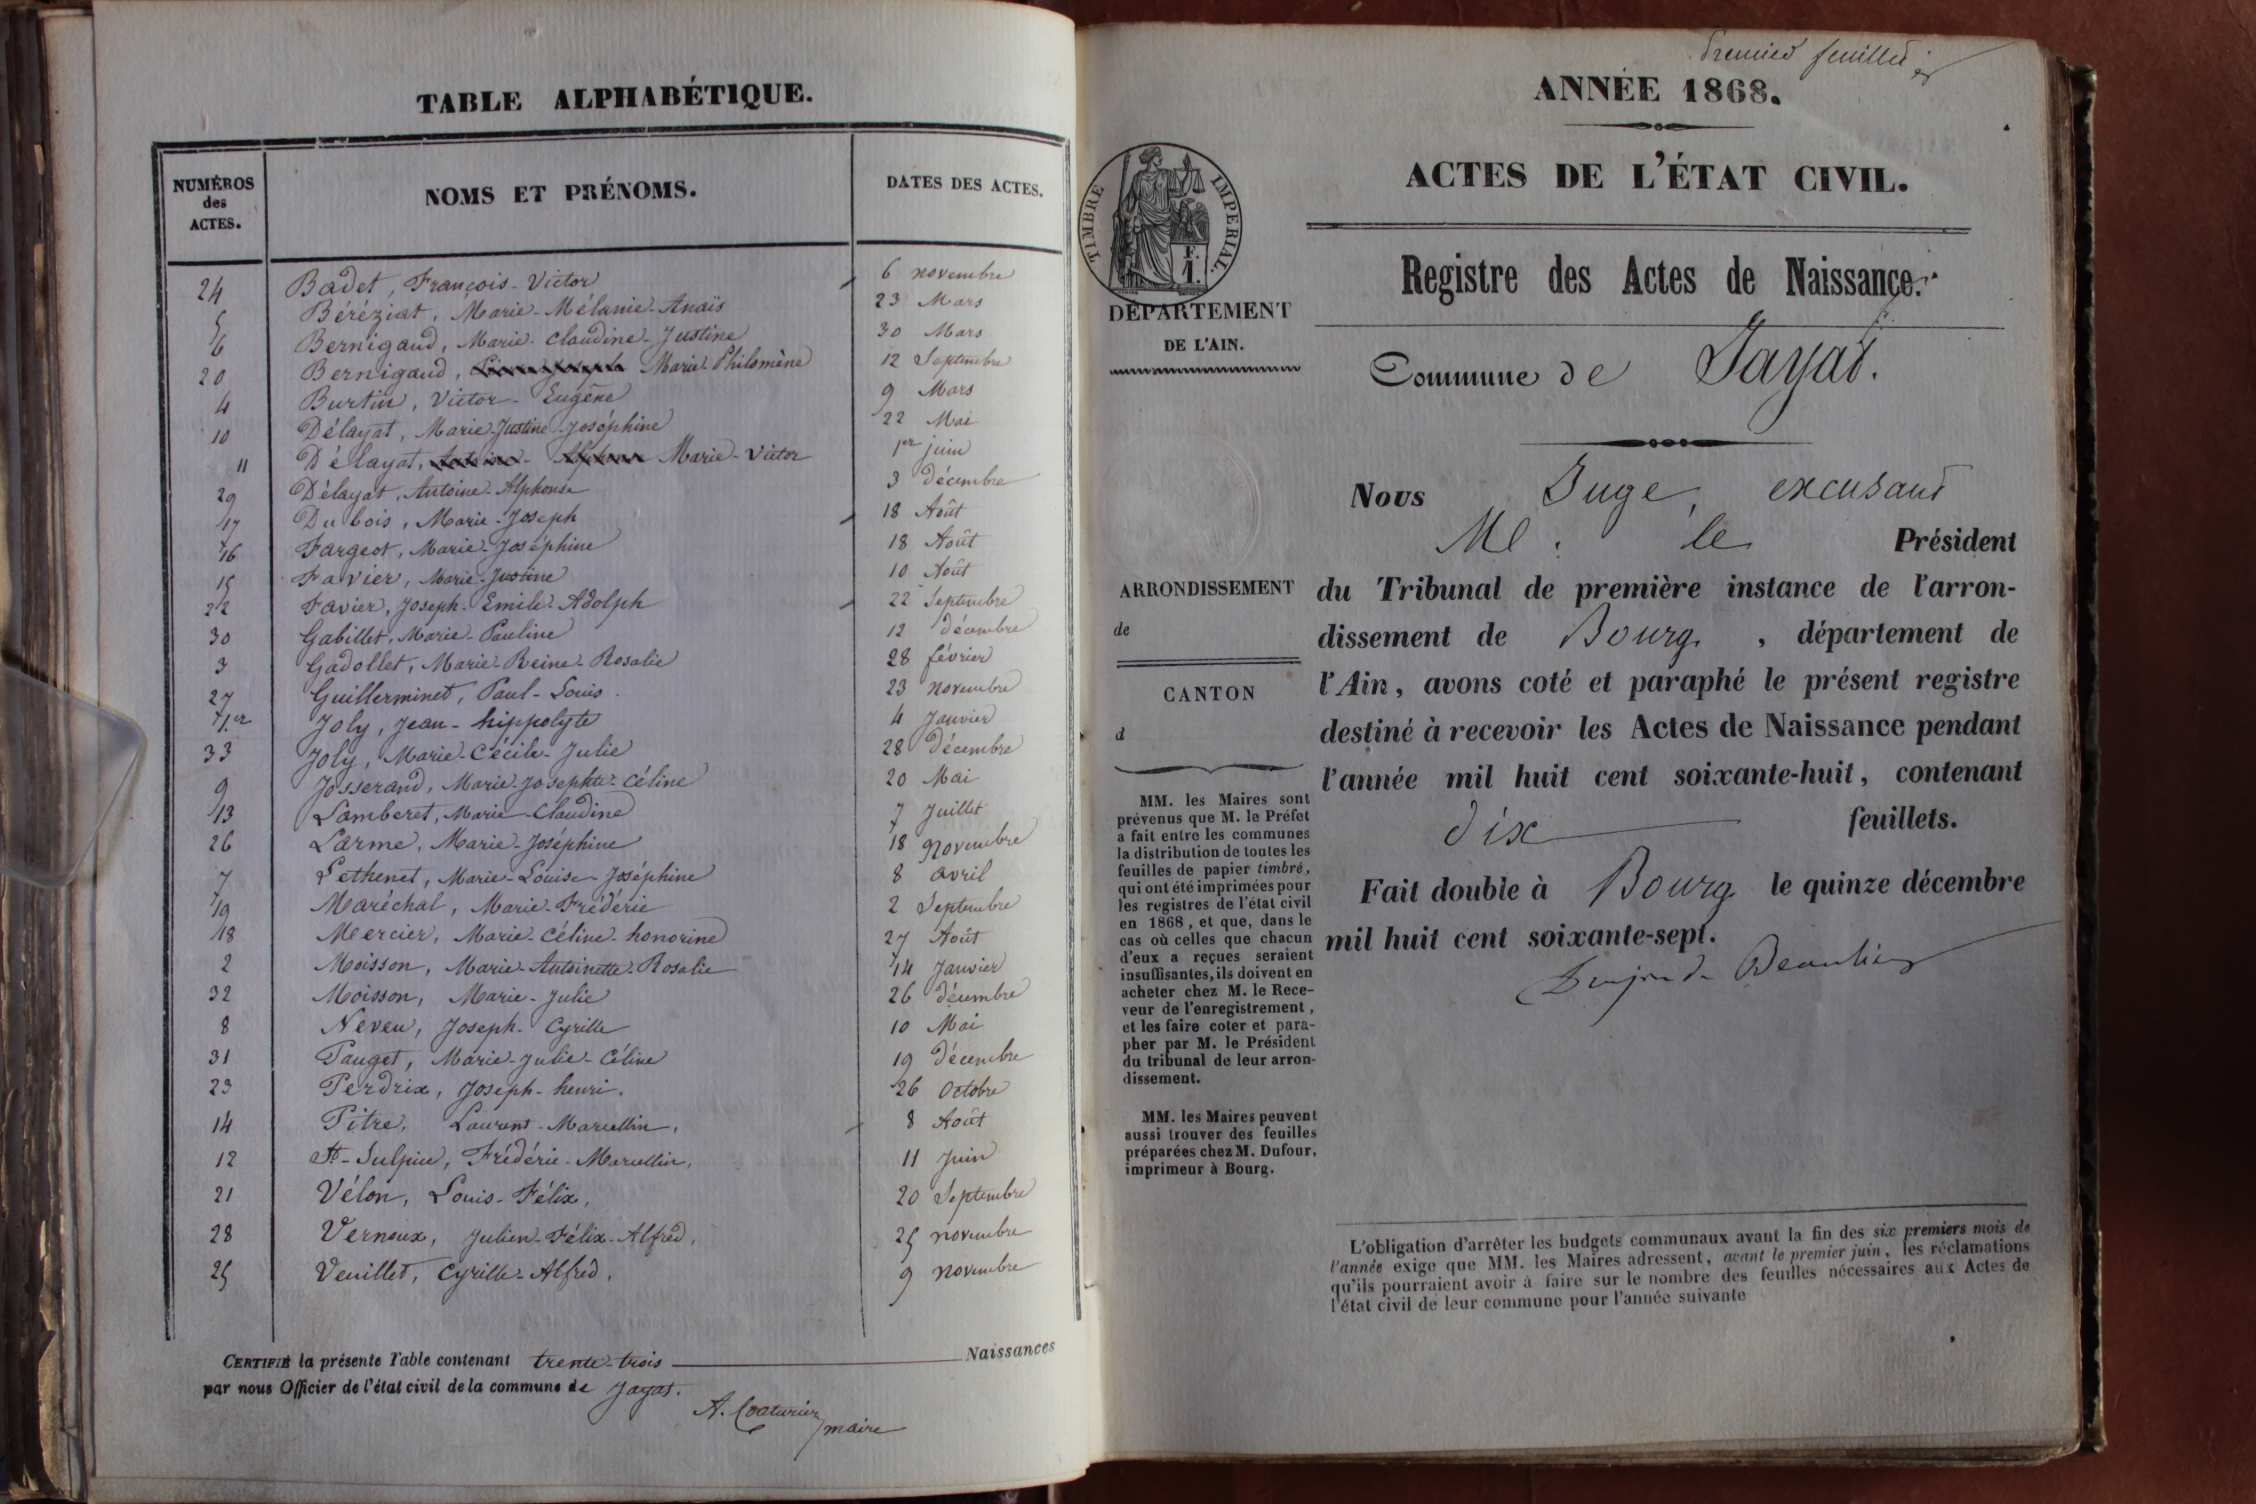 TABLE ALPHABÉTIQUE.
NUMÉROS des ACTES. NOMS ET PRÉNOMS. DATES DES ACTES.
24 Badet, François-Victor 6 novembre
5 Béréziat, Marie-Mélanie-Anaïs 23 Mars
6 Bernigaud, Marie-Claudine-Justine 30 Mars
20 Bernigaud, Marie-Philomène 12 Septembre
4 Burtin, Victor-Eugène 9 Mars
10 Délayat, Marie-Justine-Joséphine 22 Mai
11 Délayat, Marie-Victor 1er juin
29 Délayat, Antoine-Alphonse 3 décembre
17 Dubois, Marie-Joseph 18 Août
16 Fargeot, Marie-Joséphine 18 Août
15 Favier, Marie-Justine 10 Août
22 Favier, Joseph-Emile-Adolph 22 Septembre
30 Gabillet, Marie-Pauline 12 décembre
3 Gadollet, Marie-Reine-Rosalie 28 février
27 Guillerminet, Paul-Louis. 23 novembre
1er Joly, Jean-hippolyte 4 Janvier
33 Joly, Marie-Cécile-Julie 28 décembre
9 Josserand, Marie-Josephte-Céline 20 Mai
13 Lamberet, Marie-Claudine 7 Juillet
26 Larme, Marie-Joséphine 18 novembre
7 Pethenet, Marie-Louise-Joséphine 8 avril
19 Maréchal, Marie-Frédéric 2 Septembre
18 Mercier, Marie-Céline-honorine 27 Août
2 Moisson, Marie-Antoinette-Rosalie 14 Janvier
32 Moisson, Marie-Julie 26 décembre
8 Neveu, Joseph-Cyrille 10 Mai
31 Pauget, Marie-Julie-Céline 19 décembre
23 Perdrix, Joseph-henri. 26 Octobre
14 Pitre, Laurent-Marcellin, 8 Août
12 St-Sulpice, Frédéric-Marcellin, 11 Juin
21 Vélon, Louis-Félix, 20 Septembre
28 Vernoux, Julien-Félix-Alfred, 25 novembre
25 Veuillet, Cyrille-Alfred, 9 novembre
CERTIFIÉ la présente Table contenant trente-trois Naissances
par nous Officier de l'état civil de la commune de Jayat.
A. Couturier
maire
Premier feuillet
ANNÉE 1868.
ACTES DE L'ÉTAT CIVIL.
TIMBRE IMPERIAL.
F.
1.
DÉPARTEMENT
DE L'AIN.
Registre des Actes de Naissance.
Commune de Jayat.
Nous Juge, excusant
M. le Président
du Tribunal de première instance de l'arron-
dissement de Bourg, département de
l'Ain, avons coté et paraphé le présent registre
destiné à recevoir les Actes de Naissance pendant
l'année mil huit cent soixante-huit, contenant
dix feuillets.
Fait double à Bourg le quinze décembre
mil huit cent soixante-sept.
ARRONDISSEMENT
de
CANTON
d
MM. les Maires sont
prévenus que M. le Préfet
a fait entre les communes
la distribution de toutes les
feuilles de papier timbré,
qui ont été imprimées pour
les registres de l'état civil
en 1868, et que, dans le
cas où celles que chacun
d'eux a reçues seraient
insuffisantes, ils doivent en
acheter chez M. le Rece-
veur de l'enregistrement,
et les faire coter et para-
pher par M. le Président
du tribunal de leur arron-
dissement.
MM. les Maires peuvent
aussi trouver des feuilles
préparées chez M. Dufour,
imprimeur à Bourg.
L'obligation d'arrêter les budgets communaux avant la fin des six premiers mois de
l'année exige que MM. les Maires adressent, avant le premier juin, les réclamations
qu'ils pourraient avoir à faire sur le nombre des feuilles nécessaires aux Actes de
l'état civil de leur commune pour l'année suivante